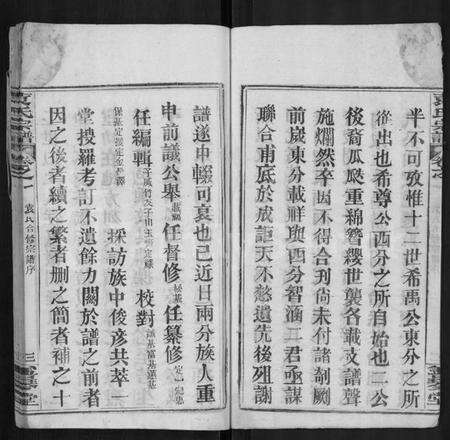 半不可攷惟十二世希禹公東分之所
徙出也希尊公西分之所自始也二公
後裔瓜瓞重綿簪纓世襲各載支譜聲
施爛然卒因不得合刊尙未付諸剞劂
前歲東分載祥與西分智涵二君亟謀
聯合甫底於成詎天不憖遺先後殂謝
譜遂中輟可哀也已近日兩分族人重
申前議公舉 任督修 任纂修
任編輯 校對
採訪族中俊彥共萃一
堂搜羅考訂不遺餘力闕於譜之前者
因之後者續之繁者删之簡者補之十
袁氏宗譜 卷之一 袁氏合修宗譜序 三